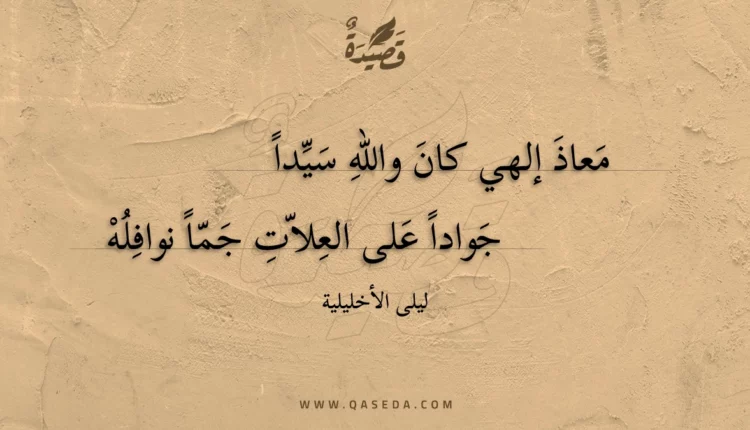 قَصِيدَةٌ
مَعاذَ إلهي كانَ واللهِ سَيِّداً
جَواداً عَلى العِلاّتِ جَمّاً نوافِلُهْ
ليلى الأخليلية
WWW.QASEDA.COM